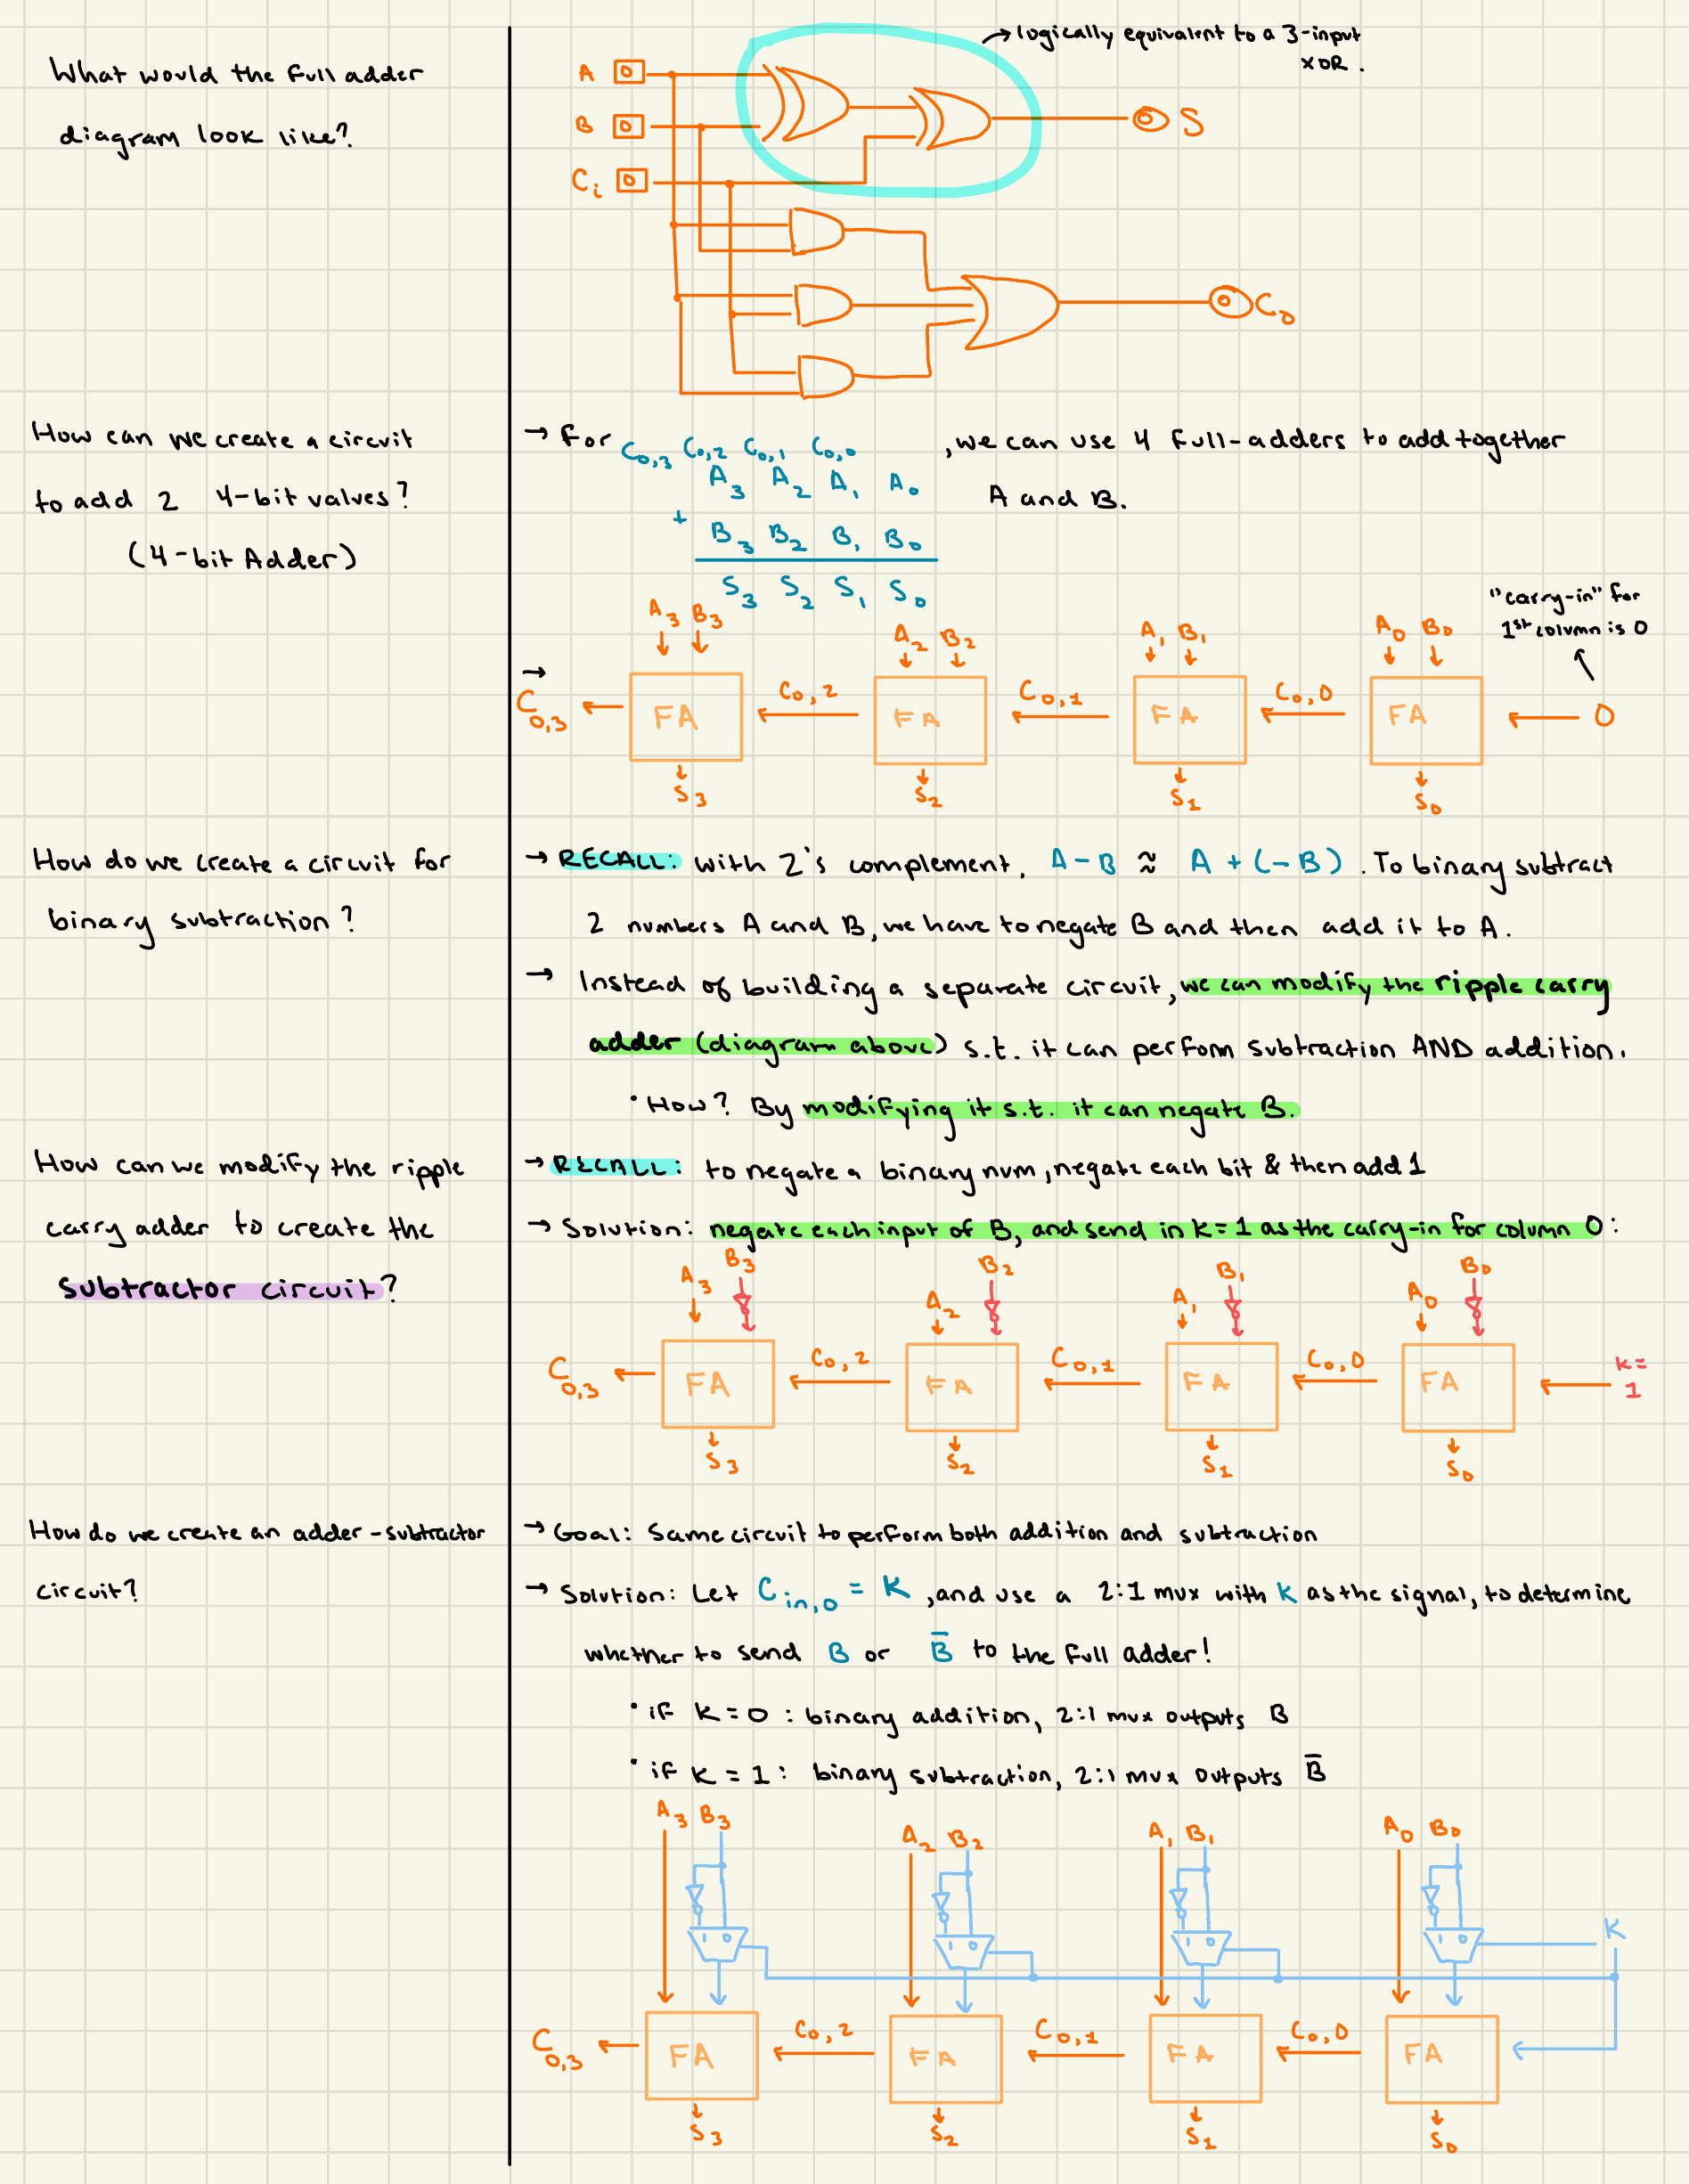 What would the full adder
diagram look like?
→ logically equivalent to a 3-input
XOR.
A 0
B 0
Ci 0
S
Co
How can we create a circuit
to add 2 4-bit values?
(4-bit Adder)
→ For C0,3 C0,2 C0,1 C0,0 , we can use 4 full-adders to add together
A3 A2 A1 A0 A and B.
+ B3 B2 B1 B0
S3 S2 S1 S0
"carry-in" for
1st column is 0
A3 B3 A2 B2 A1 B1 A0 B0
→ C0,3 ← FA C0,2 ← FA C0,1 ← FA C0,0 ← FA ← 0
S3 S2 S1 S0
How do we create a circuit for
binary subtraction?
→ RECALL: with 2's complement, A - B ≈ A + (-B). To binary subtract
2 numbers A and B, we have to negate B and then add it to A.
→ Instead of building a separate circuit, we can modify the ripple carry
adder (diagram above) s.t. it can perform subtraction AND addition.
• How? By modifying it s.t. it can negate B.
How can we modify the ripple
carry adder to create the
subtractor circuit?
→ RECALL: to negate a binary num, negate each bit & then add 1
→ Solution: negate each input of B, and send in k=1 as the carry-in for column 0:
A3 B3 A2 B2 A1 B1 A0 B0
C0,3 ← FA C0,2 ← FA C0,1 ← FA C0,0 ← FA ← k=
1
S3 S2 S1 S0
How do we create an adder-subtractor
circuit?
→ Goal: Same circuit to perform both addition and subtraction
→ Solution: Let Cin,0 = K, and use a 2:1 mux with K as the signal, to determine
whether to send B or B̅ to the full adder!
• if K=0: binary addition, 2:1 mux outputs B
• if K=1: binary subtraction, 2:1 mux outputs B̅
A3 B3 A2 B2 A1 B1 A0 B0
1 0 1 0 1 0 1 0 K
C0,3 ← FA C0,2 ← FA C0,1 ← FA C0,0 ← FA
S3 S2 S1 S0